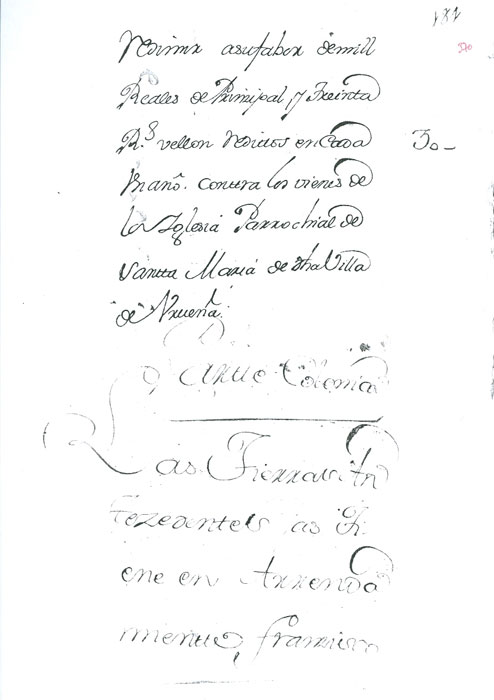 181
370
Redimir a su fabor de mill
Reales de Prinzipal y Treinta
R.s vellon Reditos en Cada
un año. contra los vienes de
la Iglesia Parrochial de
Santta Maria de dha Villa
de
30_
Las Tierras An
tezedentels as ti
ene en Arrenda
miento, fran